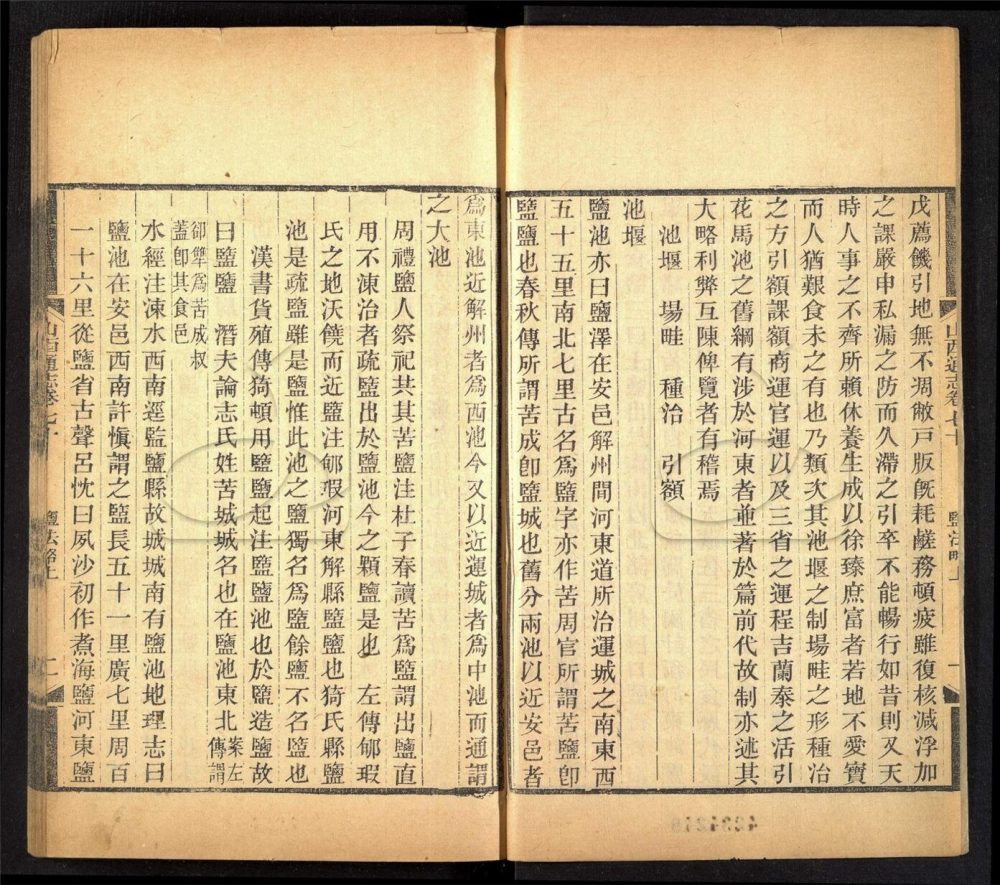 戊薦饑引地無不凋敝戸版旣耗鹺務頓疲雖復核減浮加
之課嚴申私漏之防而久滯之引卒不能暢行如昔則又天
時人事之不齊所賴休養生成以徐臻庶富者若地不愛寶
而人猶艱食未之有也乃類次其池堰之制場畦之形種治
之方引額課額商運官運以及三省之運程吉蘭泰之活引
花馬池之舊綱有涉於河東者並著於篇前代故制亦述其
大略利弊互陳俾覽者有稽焉
池堰 場畦 種治 引額
池堰
鹽池亦曰鹽澤在安邑解州間河東道所治運城之南東西
五十五里南北七里古名爲鹽字亦作苦周官所謂苦鹽卽
鹽鹽也春秋傳所謂苦成卽鹽城也舊分兩池以近安邑者
山西通志卷七十 鹽法略上 一
爲東池近解州者爲西池今又以近運城者爲中池而通謂
之大池
周禮鹽人祭祀共其苦鹽注杜子春讀苦爲盬謂出鹽直
用不湅治者疏鹽出於鹽池今之顆鹽是也 左傳郇瑕
氏之地沃饒而近盬注郇瑕河東解縣盬鹽也猗氏縣鹽
池是疏盬雖是鹽惟此池之鹽獨名爲盬餘鹽不名盬也
漢書貨殖傳猗頓用盬鹽起注盬鹽池也於盬造鹽故
曰盬鹽 潛夫論志氏姓苦城城名也在鹽池東北案左傳謂
郤犨爲苦成叔
蓋卽其食邑
水經注涑水西南逕監鹽縣故城城南有鹽池地理志曰
鹽池在安邑西南許愼謂之盬長五十一里廣七里周百
一十六里從鹽省古聲呂忱曰夙沙初作煮海鹽河東鹽
山西通志卷七十 鹽法略上 二